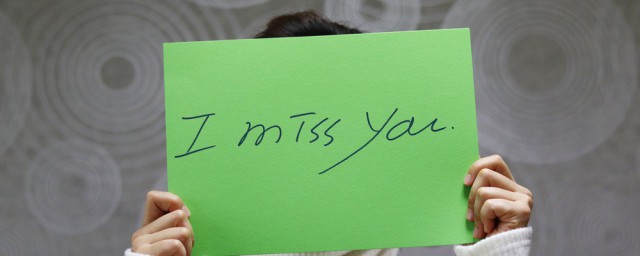 I miss you.